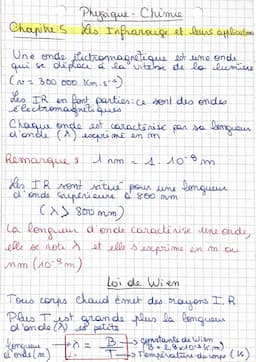 Physique - Chimie
Chapitre 5 : Les Infrarouge et leurs applications
Une onde électromagnétique est une onde
qui se déplace à la vitesse de la lumière
(v = 300 000 Km.s⁻¹)
Les IR en font parties : ce sont des ondes
électromagnétiques
Chaque onde est caractérisé par sa longueur
d'onde (λ) exprimé en m
Remarque : 1 nm = 1.10⁻⁹ m
Les IR sont situé pour une longueur
d'onde supérieure à 800 nm
(λ > 800 nm)
La longueur d'onde caractérise une onde,
elle se note λ et elle s'exprime en m ou
nm (10⁻⁹ m)
Loi de Wien
Tous corps chaud émet des rayons I.R
Plus T est grande plus la longueur
d'onde (λ) est petite
longueur d'onde (m) ← λ = B / T → constante de Wien (B = 2,9 x 10⁻³ K.m)
→ Température du corps (K)